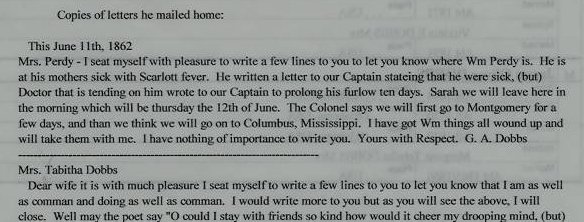 Copies of letters he mailed home:
This June 11th, 1862
Mrs. Perdy - I seat myself with pleasure to write a few lines to you to let you know where Wm Perdy is. He is
at his mothers sick with Scarlott fever. He written a letter to our Captain stateing that he were sick, (but)
Doctor that is tending on him wrote to our Captain to prolong his furlow ten days. Sarah we will leave here in
the morning which will be thursday the 12th of June. The Colonel says we will first go to Montgomery for a
few days, and than we think we will go on to Columbus, Mississippi. I have got Wm things all wound up and
will take them with me. I have nothing of importance to write you. Yours with Respect. G. A. Dobbs
------------------------------------------------------------
Mrs. Tabitha Dobbs
Dear wife it is with much pleasure I seat myself to write a few lines to you to let you know that I am as well
as comman and doing as well as comman. I would write more to you but as you will see the above, I will
close. Well may the poet say "O could I stay with friends so kind how would it cheer my drooping mind, (but)